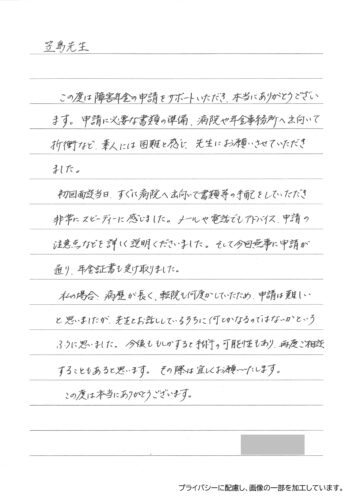 笠島先生
この度は障害年金の申請をサポートいただき、本当にありがとうござい
ます。申請に必要な書類の準備、病院や年金事務所へ出向いて
折衝など、素人には困難と感じ、先生にお願いさせていただき
ました。
初回面談当日、すぐに病院へ出向いて書類等の手配をしていただき
非常にスピーディーに感じました。メールや電話でもアドバイス、申請の
注意点などを詳しく説明くださいました。そして今回無事に申請が
通り、年金証書も受け取りました。
私の場合、病歴が長く、転院も何度かしていたため、申請は難しい
と思いましたが、先生とお話ししているうちに何とかなるのではないかという
ふうに思いました。今後もしかすると手術の可能性もあり、再度ご相談
することもあると思います。その際は宜しくお願いいたします。
この度は本当にありがとうございます。
プライバシーに配慮し、画像の一部を加工しています。